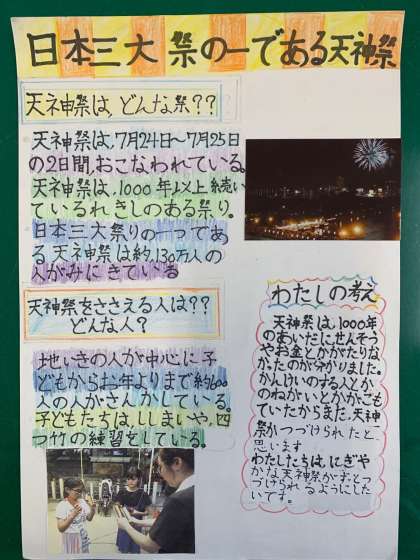 日本三大祭の一である天神祭
天神祭は,どんな祭??
天神祭は,7月24日〜7月25日
の2日間,おこなわれている。
天神祭は,1000年以上続い
ているれきしのある祭り。
日本三大祭りの一つであ
る天神祭は約130万人の
人がみにきている
天神祭をささえる人は??
どんな人?
地いきの人が中心に子
どもからお年よりまで約600
人の人がさんかしている。
子どもたちは,ししまいや,四
つ竹の練習をしている。
わたしの考え
天神祭は,1000年
のあいだにせんそう
やお金とかがたりな
かったのが分かりました。
かんけいのする人とか
のねがいとかがこも
ていたからまた,天神
祭がつづけられたと
思います
わたしたちは,にぎや
かな天神祭がずとつ
づけられるようにした
いです。